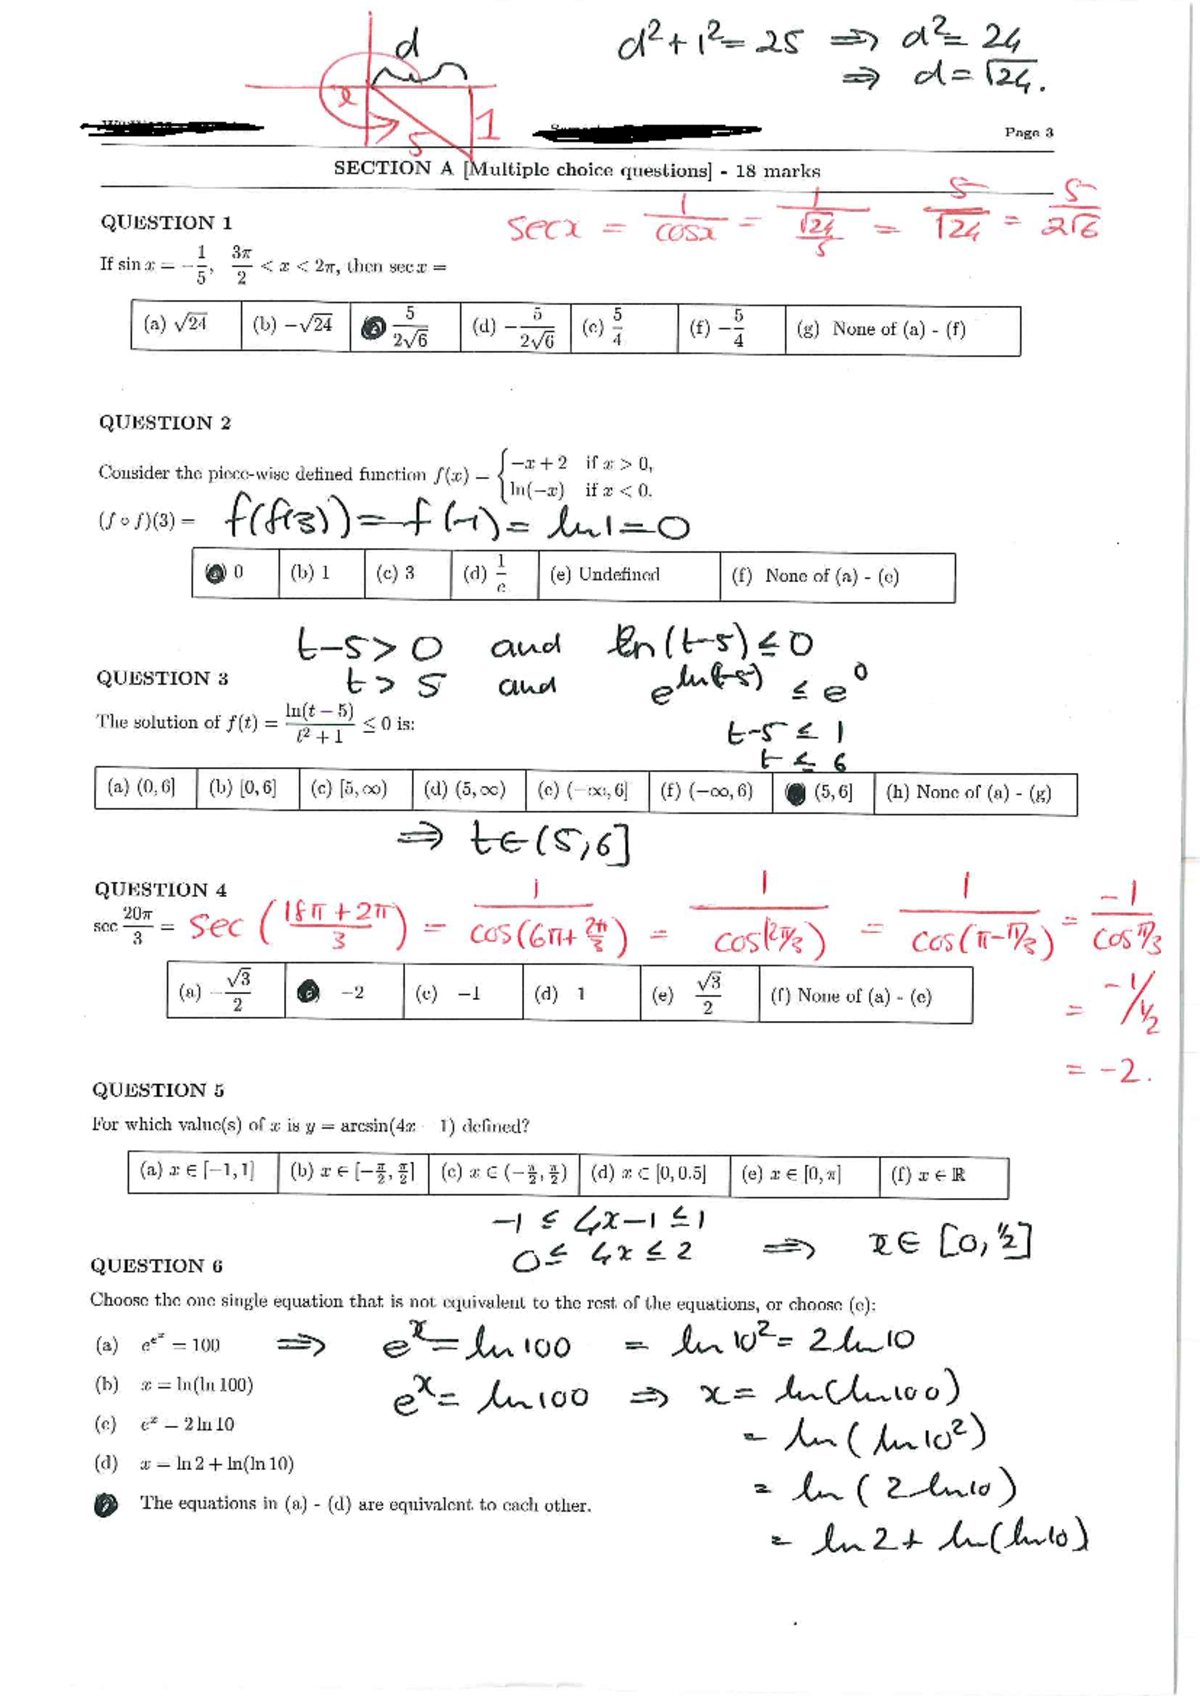 d
d² + 1² = 25 ⟹ d² = 24
⟹ d = √24.
x
5
1
Page 3
SECTION A [Multiple choice questions] - 18 marks
QUESTION 1
sec x = 1/cos x = 1/(√24/5) = 5/√24 = 5/2√6
If sin x = −1/5, 3π/2 < x < 2π, then sec x =
(a) √24 (b) −√24 5/2√6 (d) −5/2√6 (e) 5/4 (f) −5/4 (g) None of (a) - (f)
QUESTION 2
Consider the piece-wise defined function f(x) = { −x + 2 if x > 0,
ln(−x) if x < 0.
(f ∘ f)(3) = f(f(3)) = f(-1) = ln 1 = 0
0 (b) 1 (c) 3 (d) 1/e (e) Undefined (f) None of (a) - (e)
t-5 > 0 and ln(t-5) ≤ 0
QUESTION 3
t > 5 and e^ln(t-5) ≤ e^0
The solution of f(t) = ln(t − 5)/(t² + 1) ≤ 0 is:
t-5 ≤ 1
t ≤ 6
(a) (0, 6] (b) [0, 6] (c) [5, ∞) (d) (5, ∞) (e) (−∞, 6] (f) (−∞, 6) (5, 6] (h) None of (a) - (g)
⟹ t ∈ (5, 6]
QUESTION 4
sec 20π/3 = sec (18π + 2π/3) = 1/cos(6π + 2π/3) = 1/cos(2π/3) = 1/cos(π − π/3) = -1/cos π/3
(a) −√3/2 −2 (c) −1 (d) 1 (e) √3/2 (f) None of (a) - (e)
= -1/½
= -2.
QUESTION 5
For which value(s) of x is y = arcsin(4x − 1) defined?
(a) x ∈ [−1, 1] (b) x ∈ [−π/2, π/2] (c) x ∈ (−π/2, π/2) (d) x ∈ [0, 0.5] (e) x ∈ [0, π] (f) x ∈ ℝ
-1 ≤ 4x-1 ≤ 1
0 ≤ 4x ≤ 2 ⟹ x ∈ [0, ½]
QUESTION 6
Choose the one single equation that is not equivalent to the rest of the equations, or choose (e):
(a) e^e^x = 100 ⟹ e^x = ln 100 = ln 10² = 2 ln 10
(b) x = ln(ln 100) e^x = ln 100 ⟹ x = ln(ln 100)
(c) e^x = 2 ln 10
= ln(ln 10²)
(d) x = ln 2 + ln(ln 10)
= ln(2 ln 10)
The equations in (a) - (d) are equivalent to each other.
= ln 2 + ln(ln 10)